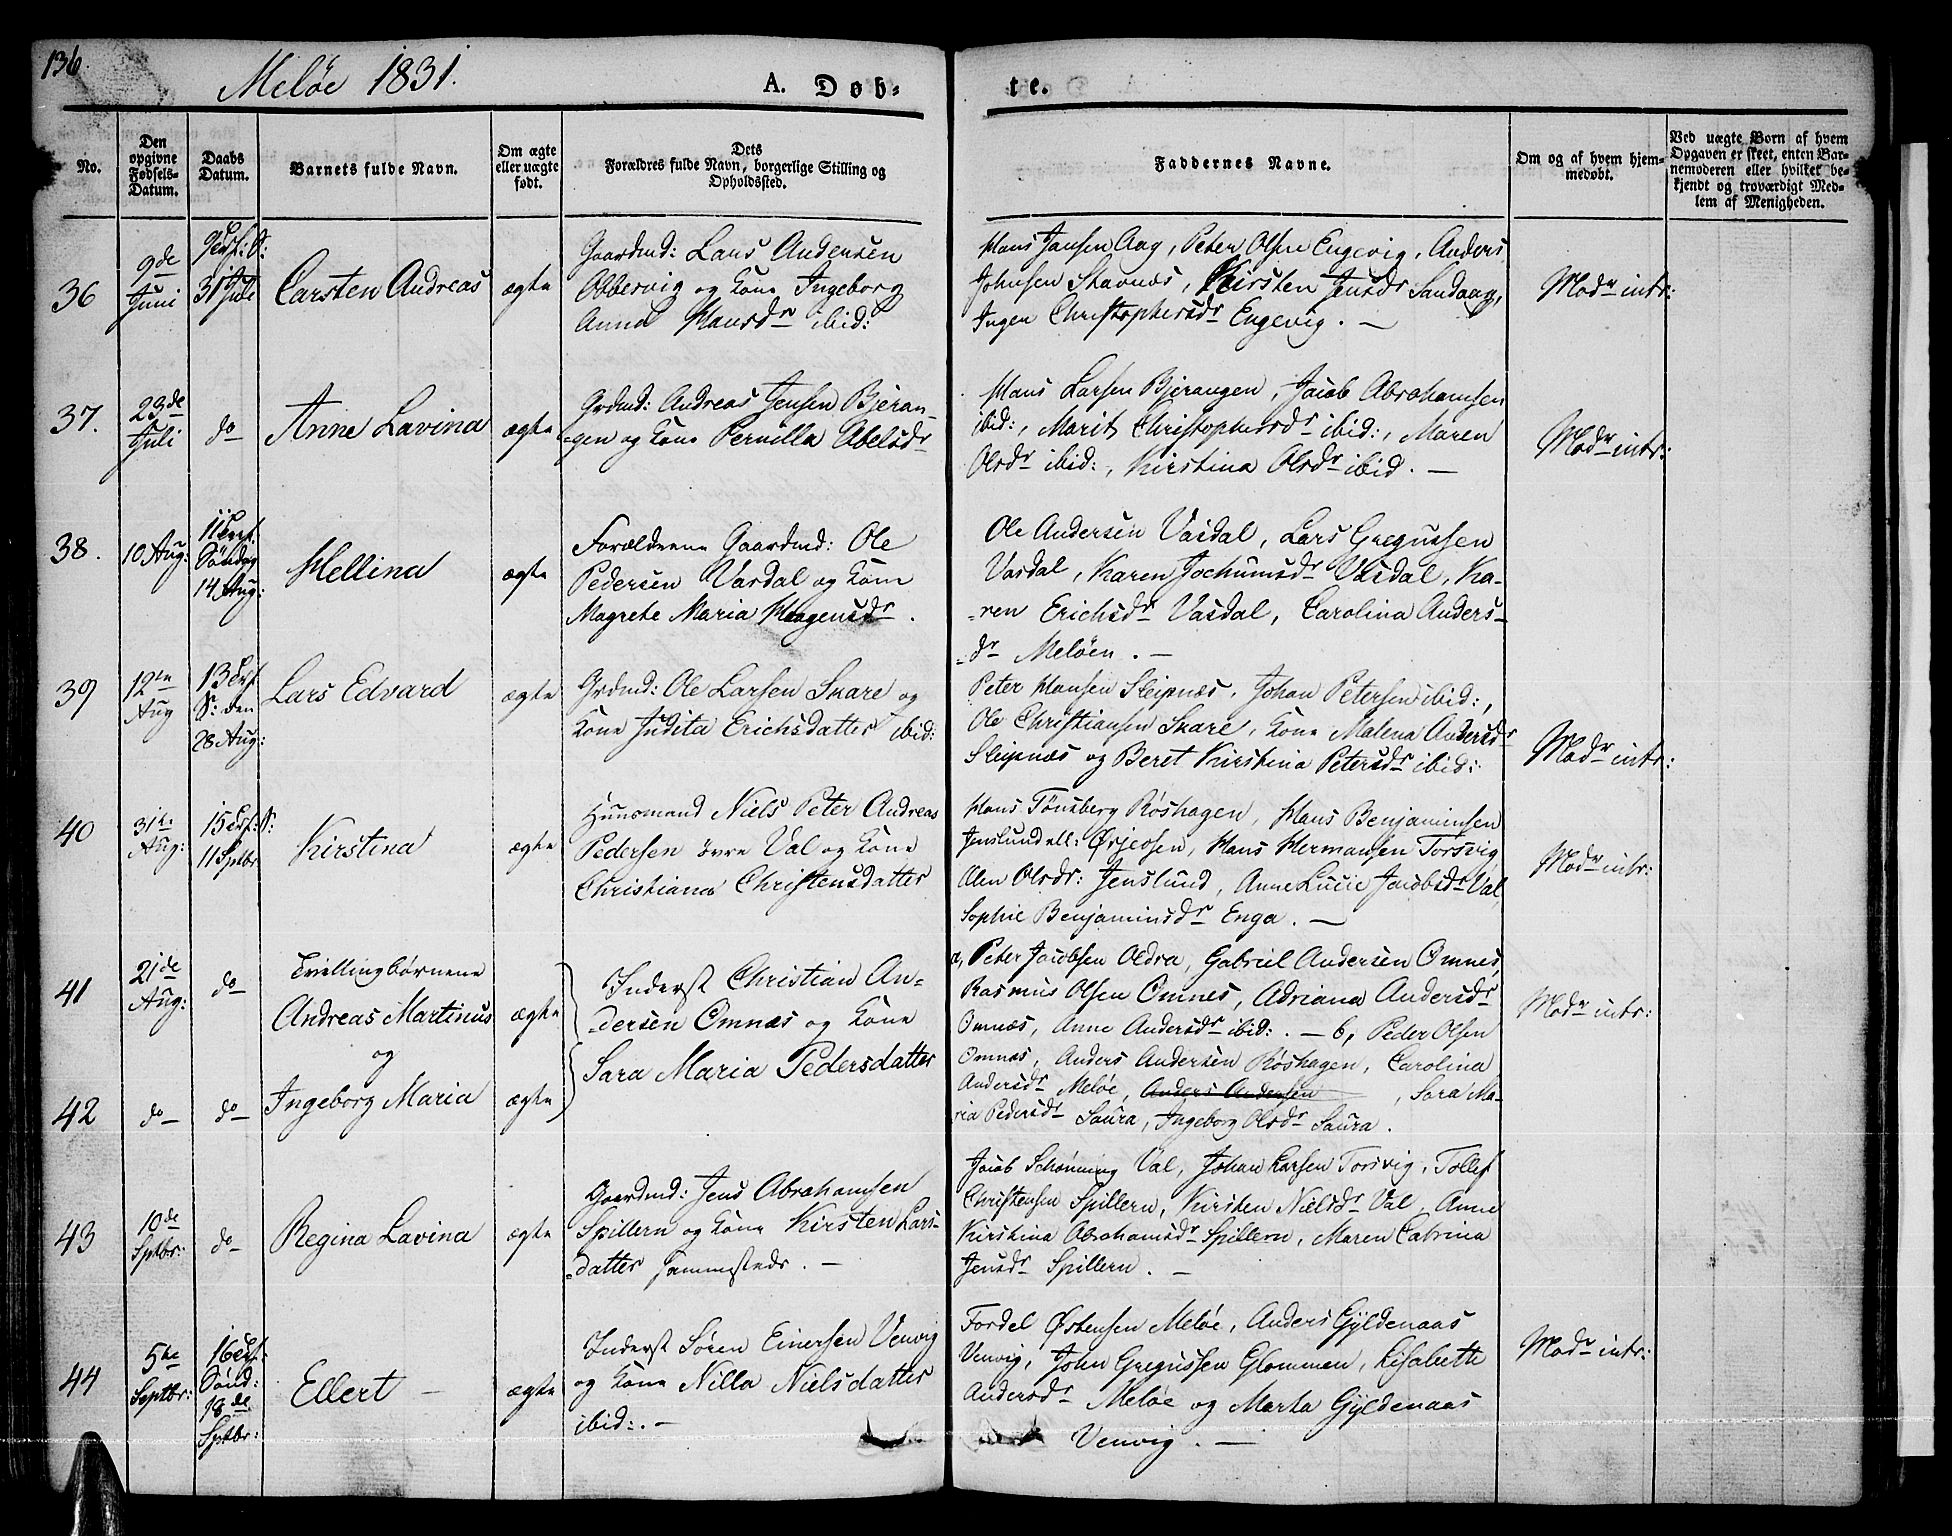 136.
Meløe 1831.
A. Døb-
te.
No.
Den opgivne Fødsels-Datum.
Daabs Datum.
Barnets fulde Navn.
Om ægte eller uægte født.
Dets Forældres fulde Navn, borgerlige Stilling og Opholdssted.
Faddernes Navne.
Om og af hvem hjem-medøbt.
Ved uægte Børn af hvem Opgaven er skeet, enten Bar-nemoderen eller hvilket be-kjendt og troværdigt Med-lem af Menigheden.
36
9de Juni
31 Juli
Carsten Andreas
ægte
Gaardmd: Lars Andersen
Obbesvig og Kone Ingeborg
Anna Hansdr ibid:
Hans Jansen Aag, Peter Olsen Engevig, Anders
Johnsen Stavnes, Kirsten Jensdr Sandaag,
Ingen Christophersdr Engevig. —
Modr intr:
37.
23de Juli
do
Anne Lavina
ægte
Grdmd: Andreas Jensen Bjeran-
-gen og Kone Pernilla Abelsdr
Hans Larsen Bjerangen, Jacob Abrahamsen
ibid:, Marit Christophersdr ibid:, Maren
Olsdr ibid:, Kirstina Olsdr ibid. —
Modr intr:
38.
10 Aug:
Søndag
14 Aug:
Hellina
ægte
Forældrene Gaardmd: Ole
Pedersen Vasdal og Kone
Magrete Maria Haagensdr.
Ole Andersen Vasdal, Lars Gregussen
Vasdal, Karen Jochumsdr Vasdal, Ka-
-ren Erichsdr Vasdal, Carolina Anders-
-dr Meløen. —
39
12te Aug
S: den
28 Aug:
Lars Edvard
ægte
Grdmd: Ole Larsen Skare og
Kone Judita Erichsdatter ibid:
Peter Hansen Sleipnæs, Johan Petersen ibid:,
Ole Christiansen Skare, Kone Malena Andersdr
Sleipnæs og Beret Kirstina Petersdr ibid:
Modr intr:
40
31te Aug:
11 Sptbr
Kirstina
ægte
Huusmand Niels Peter Andreas
Pedersen øvre Val og Kone
Christiana Christensdatter
Hans Tønsberg Røshagen, Hans Benjaminsen
Jenslund Hans Hermansen Torsvig
Olen Olsdr: Jenslund, Anne Lucie Jacobsdr Val
Sophie Benjaminsdr Enga. —
Modr intr:
41
21de Aug:
do
Tvillingbørnene
Andreas Martinus
og
ægte
Inderst Christian An-
-dersen Omnæs og Kone
Sara Maria Pedersdatter
a, Peter Jacobsen Oldra, Gabriel Andersen Omnes,
Rasmus Olsen Omnes, Adriana Andersdr
Omnæs, Anne Andersdr ibid:. — b, Peder Olsen
Omnæs, Anders Andersen Røshagen, Carolina
Andersdr Meløe, Anders Andersen, Sara Ma-
ria Pedersdr Saura, Ingeborg Olsdr Saura.
Modr intr:
42
do
do
Ingeborg Maria
ægte
43
10de Sptbr:
do
Regina Lavina
ægte
Gaardmd: Jens Abrahamsen
Spillern og Kone Kirsten Lars-
-datter sammesteds. —
Jacob Schønning Val, Johan Larsen Torsvig, Tollef
Christensen Spillern, Kirsten Nielsdr Val, Anne
Kirstina Abrahamsdr Spillern, Maren Catrina
Jensdr Spillern. —
44
5te Septbr:
Sønd:
18de
Sptbr:
Ellert —
ægte
Inderst Søren Einersen Venvig
og Kone Nilla Nielsdatter
ibid:. —
Fordel Østensen Meløe, Anders Gyldenaas
Venvig, John Gregussen Glommen, Lisabeth
Andersdr Meløe og Marta Gyldenaas
Venvig. —
Modr intr: